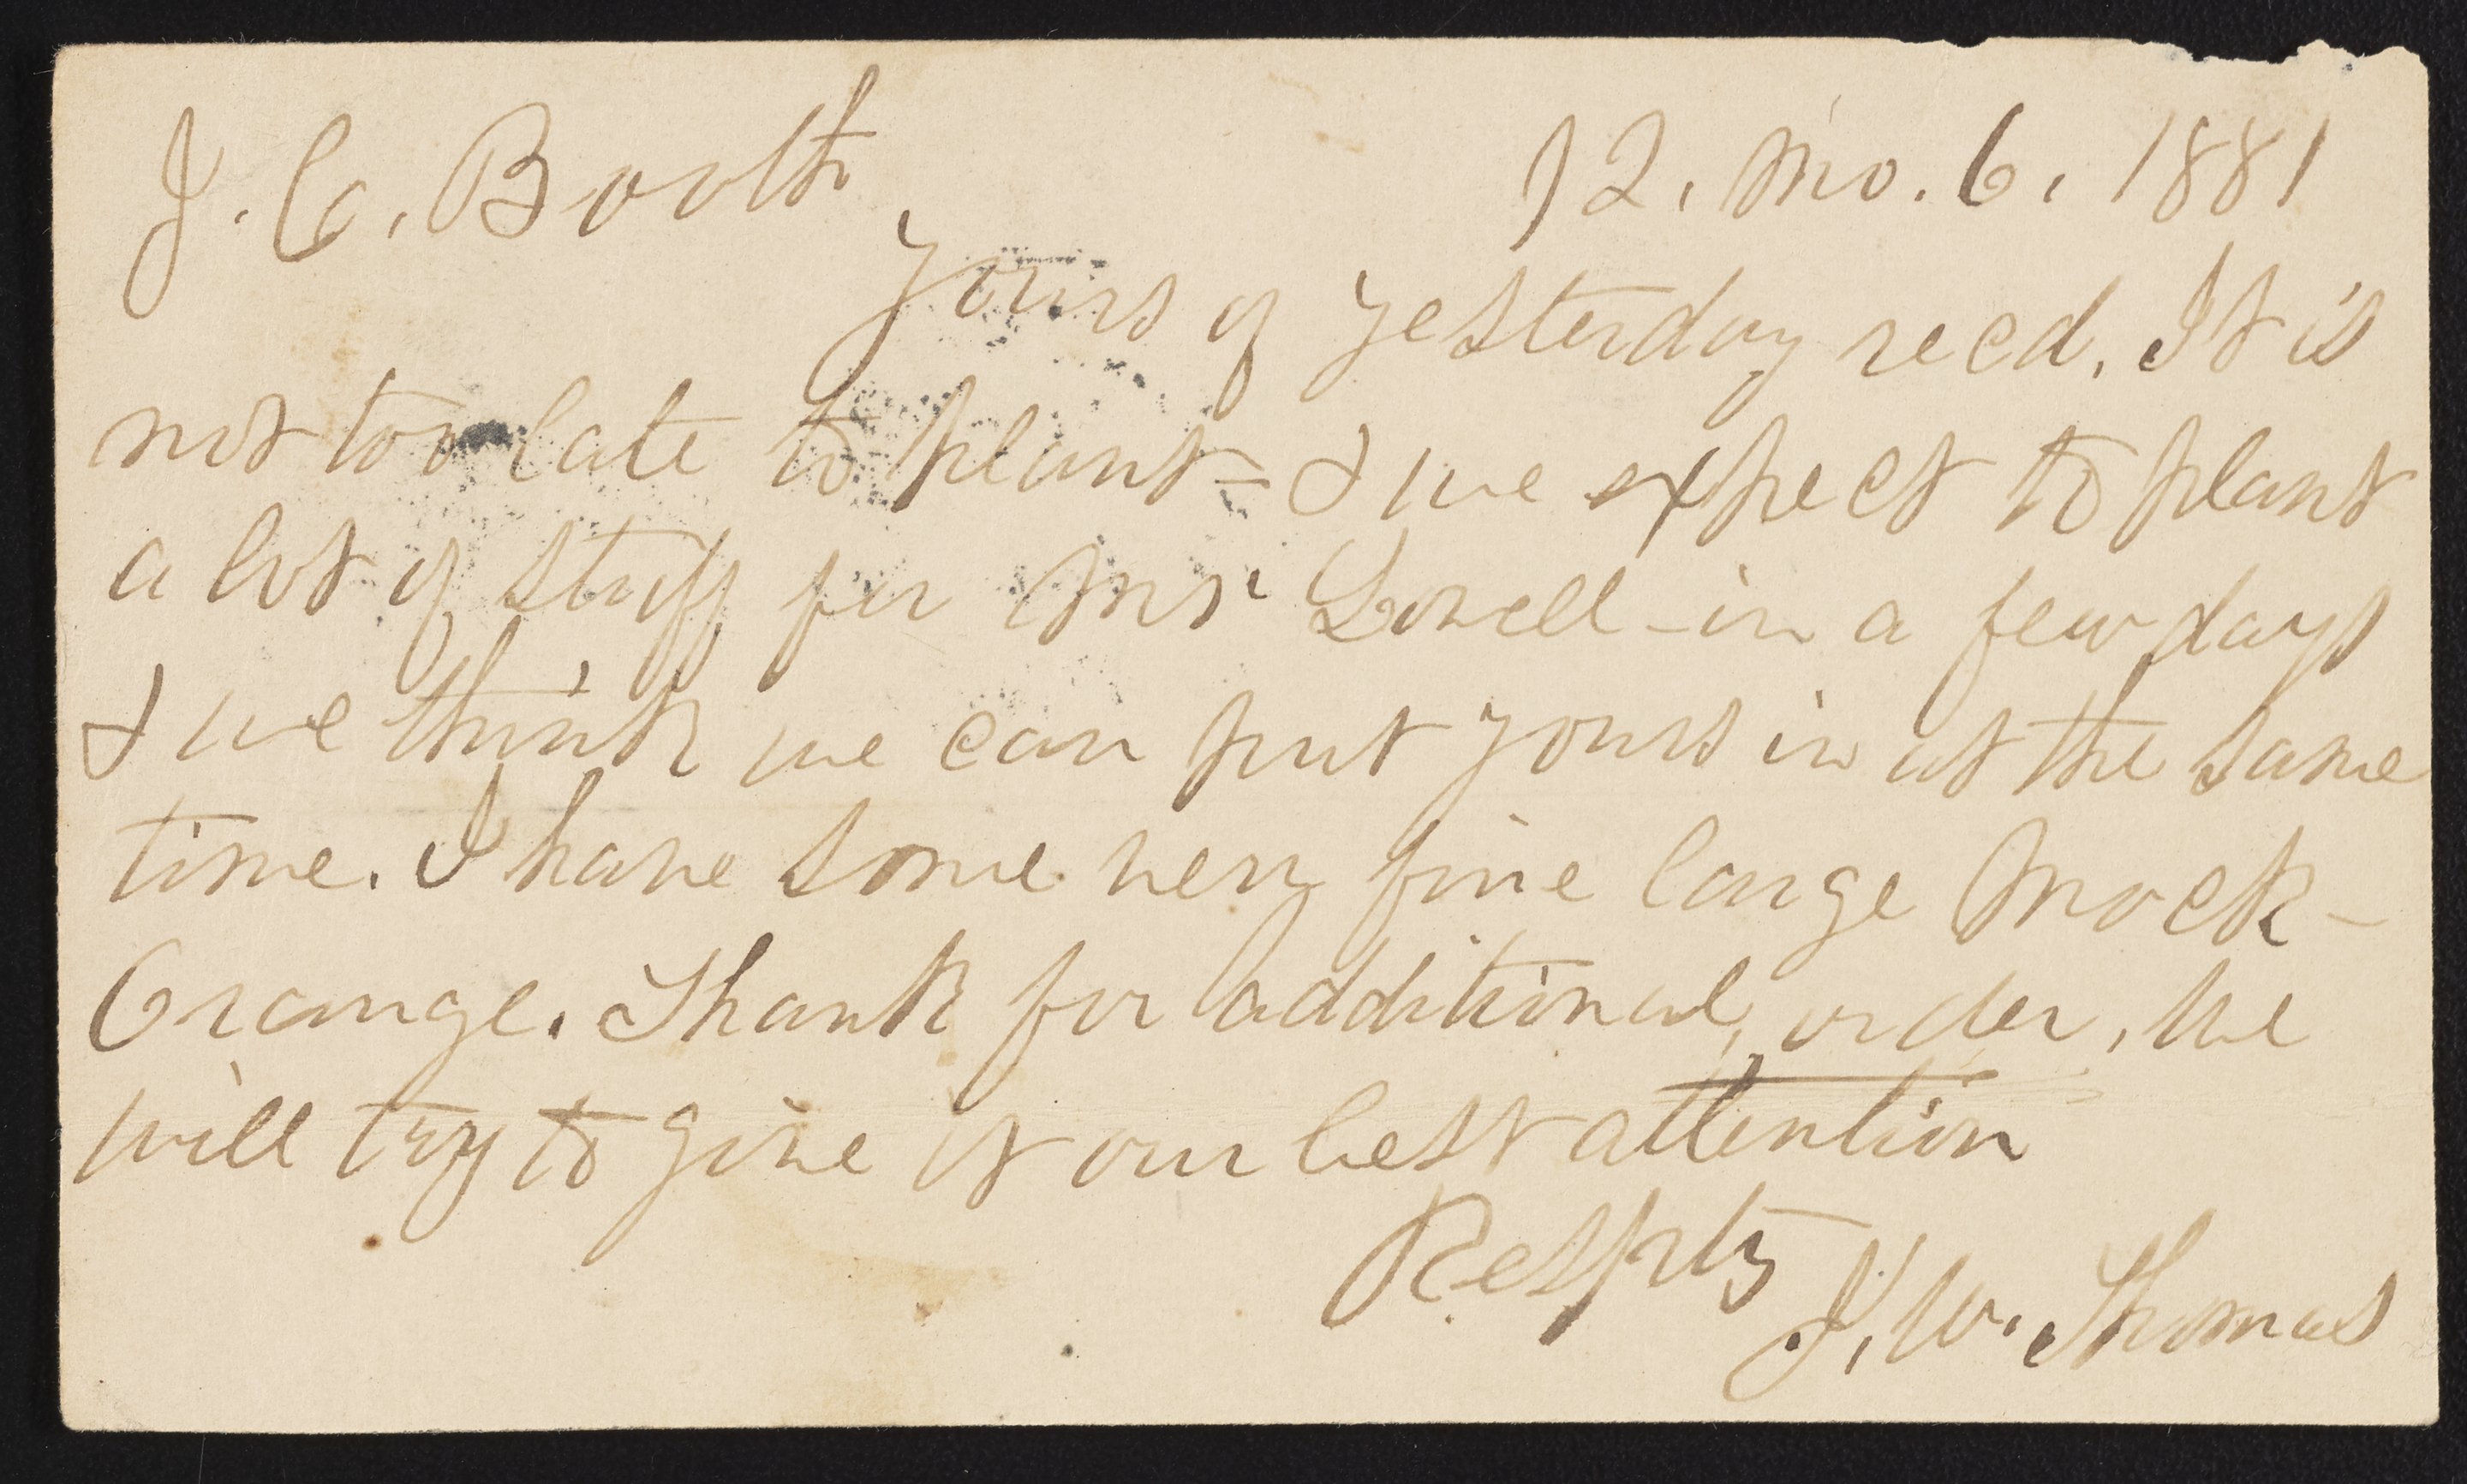 J. C. Booth,
12. Mo. 6. 1881
Yours of yesterday recd. It is
not too late to plant - & we expect to plant
a lot of stuff for Mr. Lovell - in a few days
& we think we can put yours in at the same
time. I have some very fine large Mock-
Orange. Thank for additional, order, We
will try to give it our best attention
Respty
J. W. Thomas